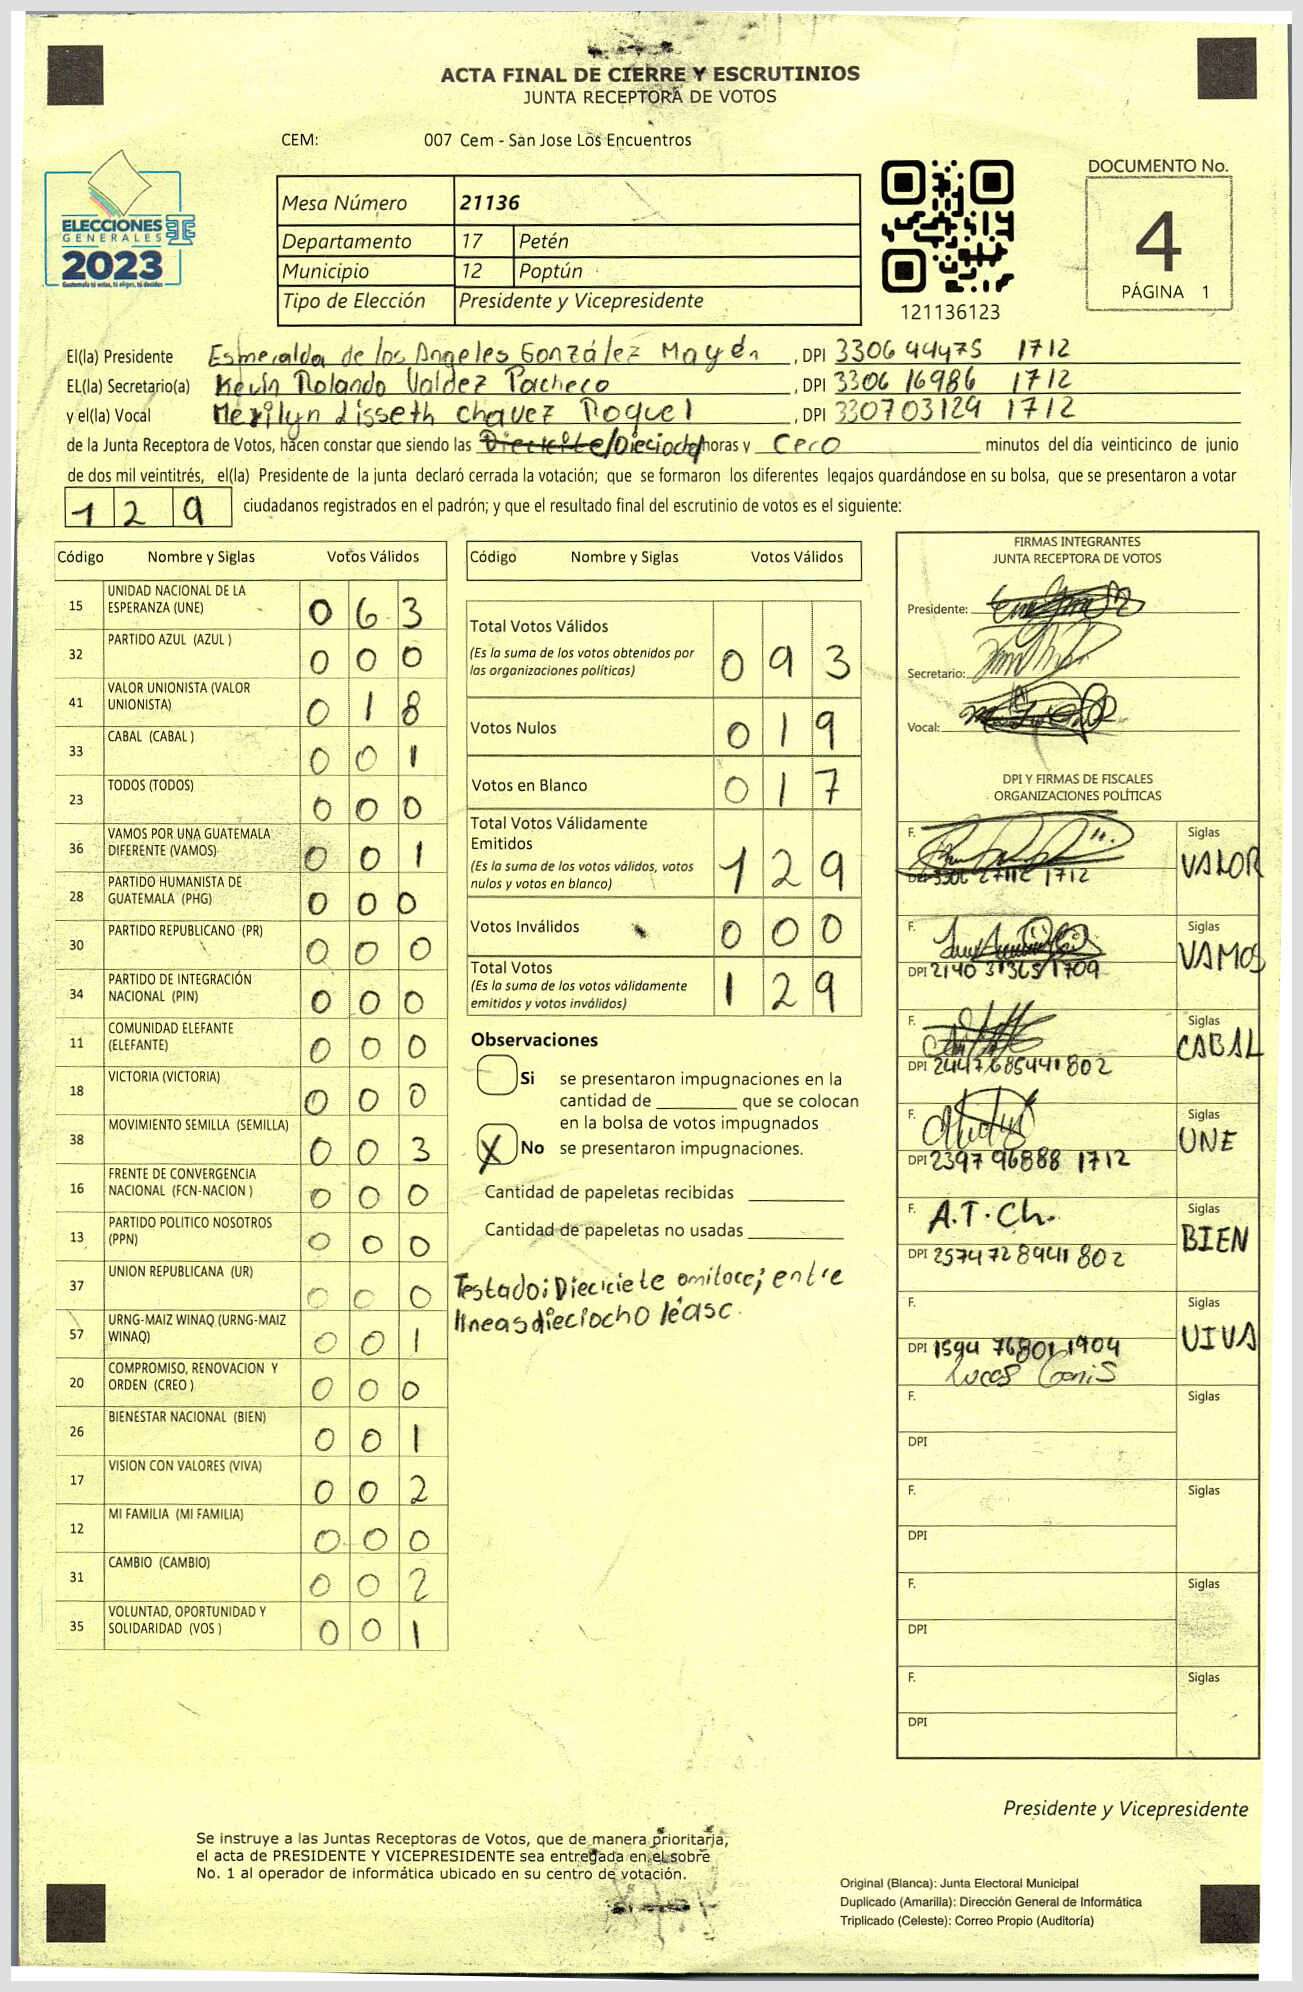 ACTA FINAL DE CIERRE Y ESCRUTINIOS
JUNTA RECEPTORA DE VOTOS
CEM: 007 Cem - San Jose Los Encuentros
ELECCIONES
GENERALES
2023
Guatemala tú votas, tú eliges, tú decides
Mesa Número 21136
Departamento 17 Petén
Municipio 12 Poptún
Tipo de Elección Presidente y Vicepresidente
121136123
DOCUMENTO No.
4
PÁGINA 1
El(la) Presidente Esmeralda de los Angeles González Mayén , DPI 3306 44475 1712
EL(la) Secretario(a) Kevin Rolando Valdez Pacheco , DPI 3306 16986 1712
y el(la) Vocal Merilyn Lisseth Chavez Roquel , DPI 330703129 1712
de la Junta Receptora de Votos, hacen constar que siendo las Dieciocho horas y Cero minutos del día veinticinco de junio
de dos mil veintitrés, el(la) Presidente de la junta declaró cerrada la votación; que se formaron los diferentes legajos guardándose en su bolsa, que se presentaron a votar
129 ciudadanos registrados en el padrón; y que el resultado final del escrutinio de votos es el siguiente:
Código Nombre y Siglas Votos Válidos
15 UNIDAD NACIONAL DE LA ESPERANZA (UNE) 0 6 3
32 PARTIDO AZUL (AZUL ) 0 0 0
41 VALOR UNIONISTA (VALOR UNIONISTA) 0 1 8
33 CABAL (CABAL ) 0 0 1
23 TODOS (TODOS) 0 0 0
36 VAMOS POR UNA GUATEMALA DIFERENTE (VAMOS) 0 0 1
28 PARTIDO HUMANISTA DE GUATEMALA (PHG) 0 0 0
30 PARTIDO REPUBLICANO (PR) 0 0 0
34 PARTIDO DE INTEGRACIÓN NACIONAL (PIN) 0 0 0
11 COMUNIDAD ELEFANTE (ELEFANTE) 0 0 0
18 VICTORIA (VICTORIA) 0 0 0
38 MOVIMIENTO SEMILLA (SEMILLA) 0 0 3
16 FRENTE DE CONVERGENCIA NACIONAL (FCN-NACION ) 0 0 0
13 PARTIDO POLITICO NOSOTROS (PPN) 0 0 0
37 UNION REPUBLICANA (UR) 0 0 0
57 URNG-MAIZ WINAQ (URNG-MAIZ WINAQ) 0 0 1
20 COMPROMISO, RENOVACION Y ORDEN (CREO ) 0 0 0
26 BIENESTAR NACIONAL (BIEN) 0 0 1
17 VISION CON VALORES (VIVA) 0 0 2
12 MI FAMILIA (MI FAMILIA) 0 0 0
31 CAMBIO (CAMBIO) 0 0 2
35 VOLUNTAD, OPORTUNIDAD Y SOLIDARIDAD (VOS ) 0 0 1
Código Nombre y Siglas Votos Válidos
Total Votos Válidos 0 9 3
(Es la suma de los votos obtenidos por
las organizaciones políticas)
Votos Nulos 0 1 9
Votos en Blanco 0 1 7
Total Votos Válidamente
Emitidos 1 2 9
(Es la suma de los votos válidos, votos
nulos y votos en blanco)
Votos Inválidos 0 0 0
Total Votos 1 2 9
(Es la suma de los votos válidamente
emitidos y votos inválidos)
Observaciones
Si se presentaron impugnaciones en la
cantidad de ________ que se colocan
en la bolsa de votos impugnados
X No se presentaron impugnaciones.
Cantidad de papeletas recibidas
Cantidad de papeletas no usadas
Testado; Dieciciete omitace; entre
lineas dieciocho léasc.
FIRMAS INTEGRANTES
JUNTA RECEPTORA DE VOTOS
Presidente:
Secretario:
Vocal:
DPI Y FIRMAS DE FISCALES
ORGANIZACIONES POLÍTICAS
F. Siglas
VALOR
DPI 3306 27112 1712
F. Siglas
VAMOS
DPI 2140 31365 1709
F. Siglas
CABAL
DPI 2447685441802
F. Siglas
UNE
DPI 2397 96888 1712
F. A.T.Ch. Siglas
BIEN
DPI 2574728941802
F. Siglas
VIVA
DPI 1594 76801 1904
F. Siglas
DPI
F. Siglas
DPI
F. Siglas
DPI
F. Siglas
DPI
Presidente y Vicepresidente
Se instruye a las Juntas Receptoras de Votos, que de manera prioritaria,
el acta de PRESIDENTE Y VICEPRESIDENTE sea entregada en el sobre
No. 1 al operador de informática ubicado en su centro de votación.
Original (Blanca): Junta Electoral Municipal
Duplicado (Amarilla): Dirección General de Informática
Triplicado (Celeste): Correo Propio (Auditoría)